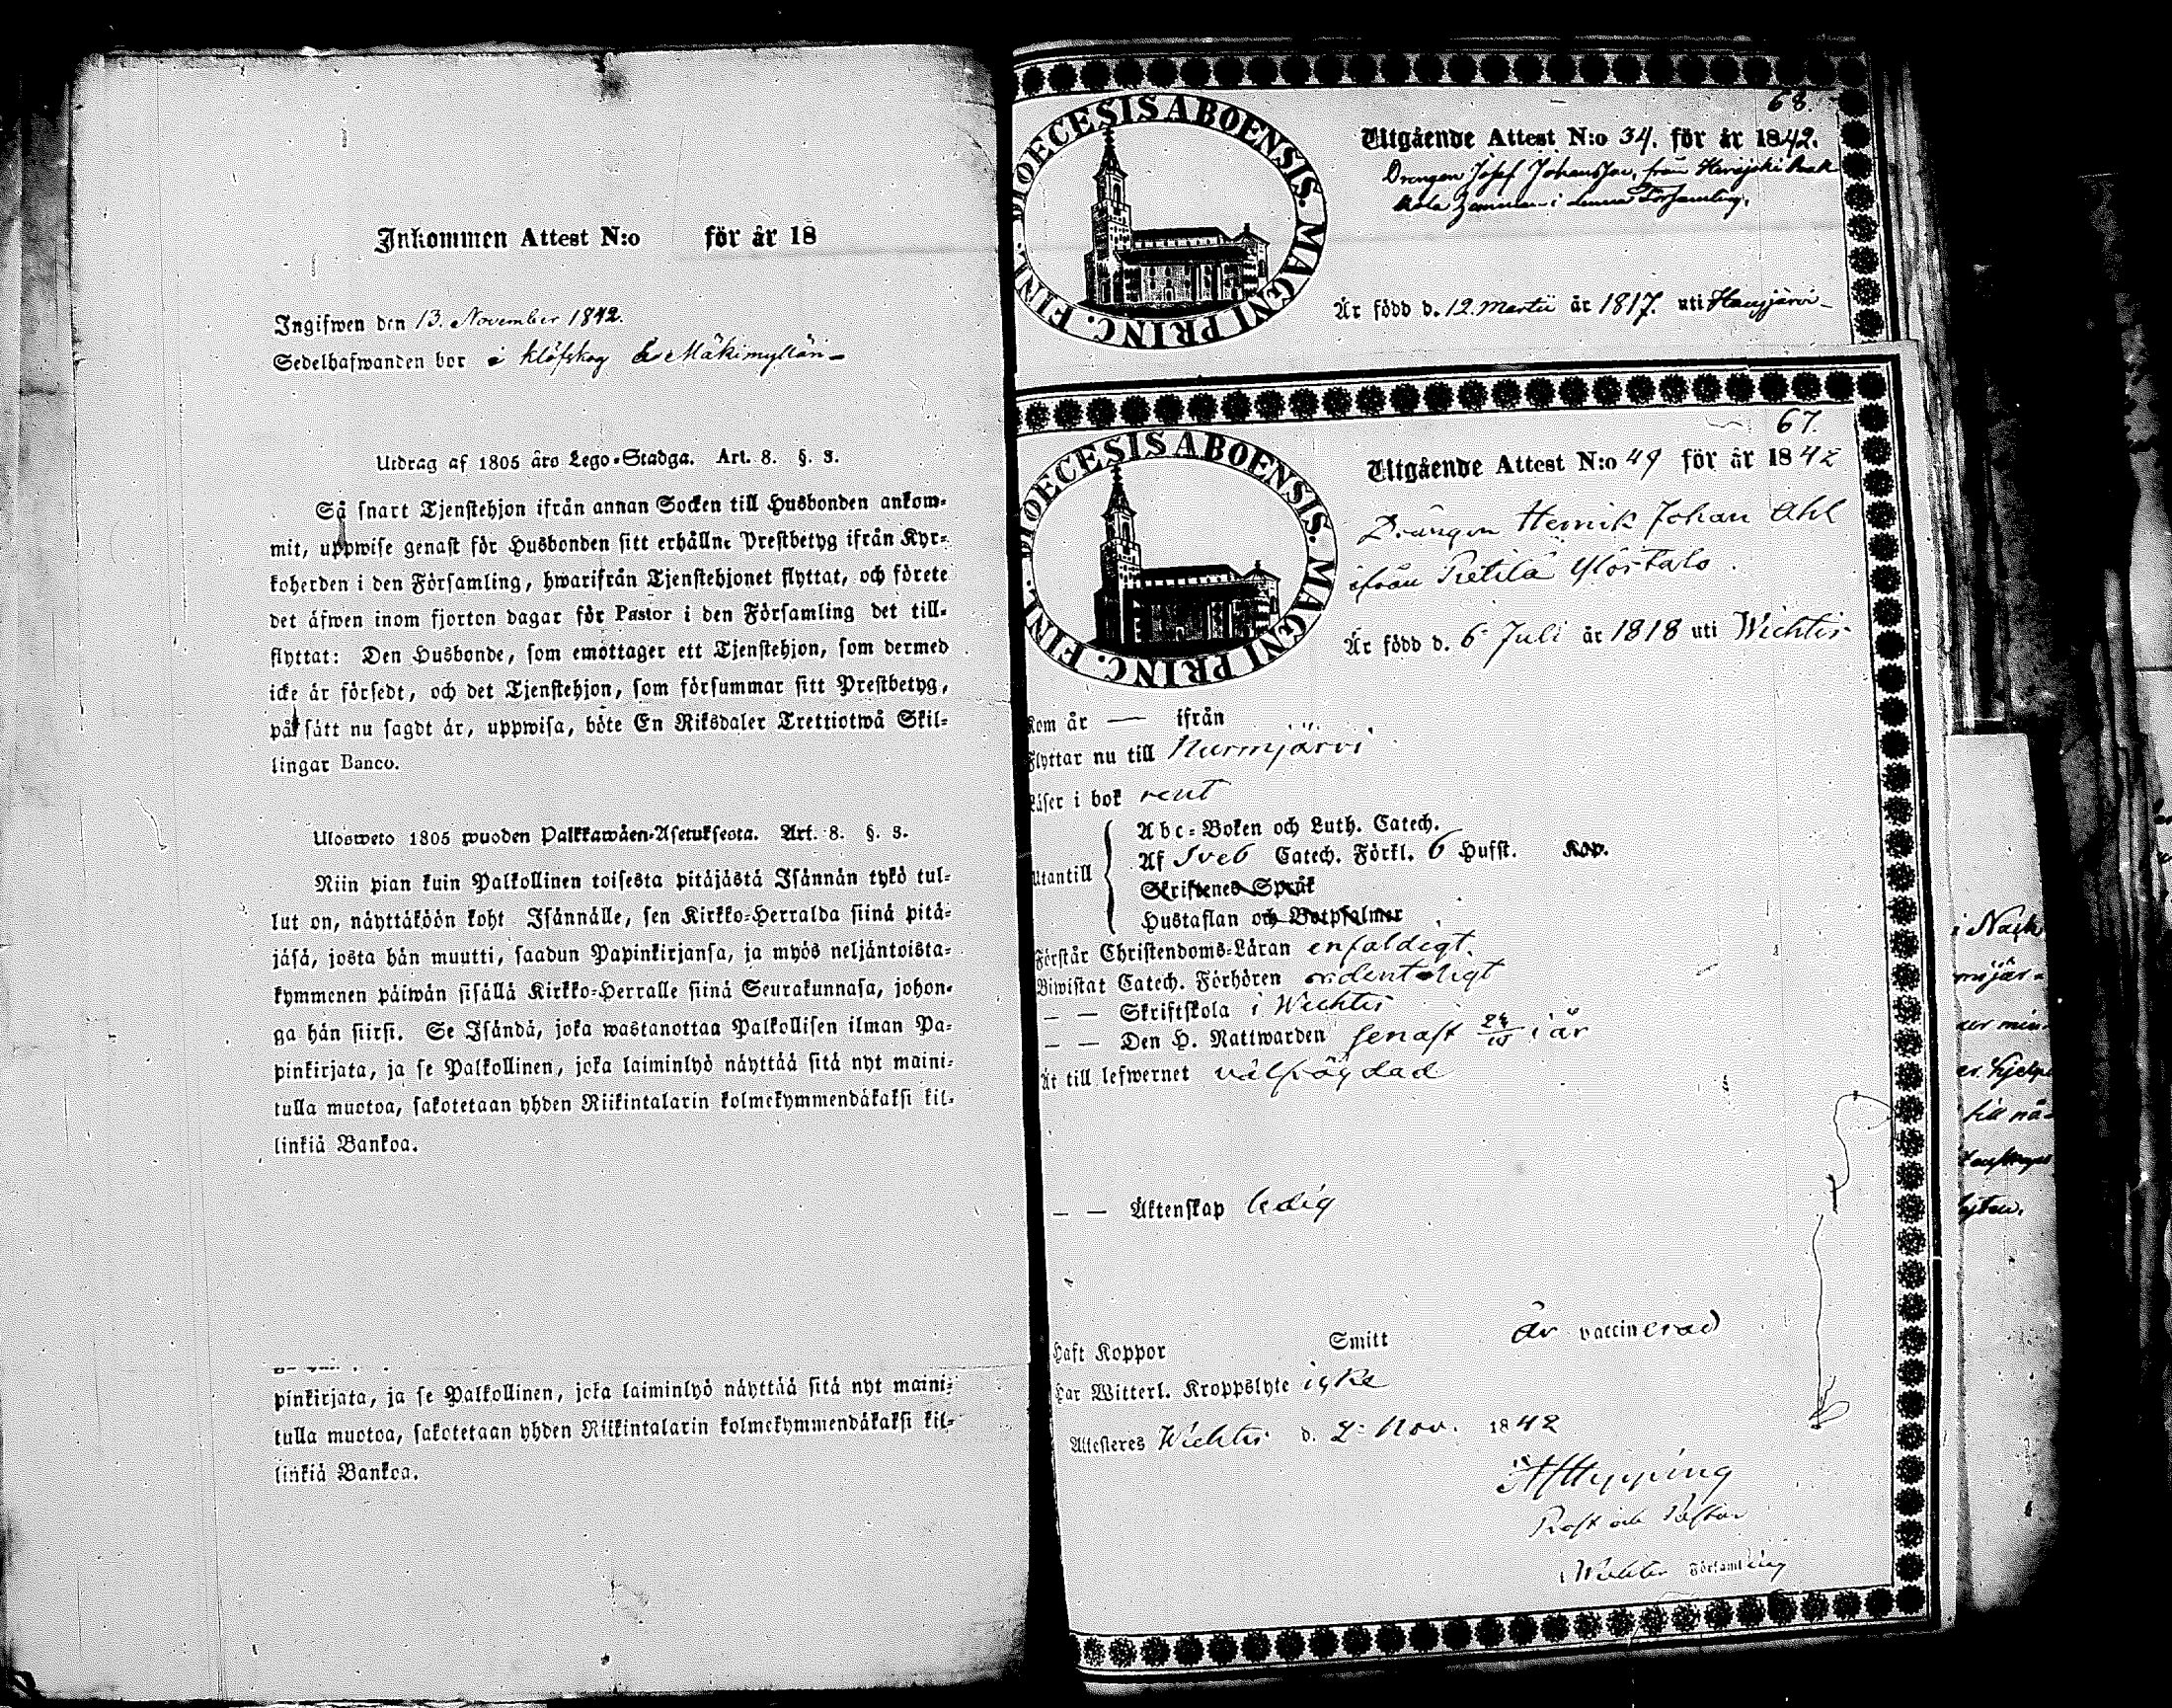 Inkommen Attest N:o för år 18
Ingifwen den 13. November 1842.
Sedelhafwanden bor i Klöfskog Mäkimylläri
Utdrag af 1805 års Lego-Stadga. Art. 8. §. 3.
Så snart Tjenstehjon ifrån annan Socken till Husbonden ankom-
mit, uppwise genast för Husbonden sitt erhållne Prestbetyg ifrån Kyr-
koherden i den Församling, hwarifrån Tjenstehjonet flyttat, och förete
det äfwen inom fjorton dagar för Pastor i den Församling det till-
flyttat: Den Husbonde, som emottager ett Tjenstehjon, som dermed
icke är försedt, och det Tjenstehjon, som försummar sitt Prestbetyg,
på sätt nu sagdt är, uppwisa, böte En Riksdaler Trettiotwå Skil-
lingar Banco.
Ulosweto 1805 wuoden Palkkawäen-Asetuksesta. Art. 8. §. 3.
Niin pian kuin Palkollinen toisesta pitäjästä Isännän tykö tul-
lut on, näyttäköön koht Isännälle, sen Kirkko-Herralda siinä pitä-
jäsä, josta hän muutti, saadun Papinkirjansa, ja myös neljäntoista-
kymmenen päiwän sisällä Kirkko-Herralle siinä Seurakunnasa, johon-
ga hän siirsi. Se Isändä, joka wastanottaa Palkollisen ilman Pa-
pinkirjata, ja se Palkollinen, joka laiminlyö näyttää sitä nyt maini-
tulla muotoa, sakotetaan yhden Riikintalarin kolmekymmendäkaksi kil-
linkiä Bankoa.
pinkirjata, ja se Palkollinen, joka laiminlyö näyttää sitä nyt maini-
tulla muotoa, sakotetaan yhden Riikintalarin kolmekymmendäkaksi kil-
linkiä Bankoa.
68.
DIOECESIS ABOENSIS. MAGNI PRINC. FINL.
Utgående Attest N:o 34. för år 1842.
Drengen Josef Johansson, från
i denna Församling.
Är född d. 12. Martii år 1817. uti
67.
DIOECESIS ABOENSIS. MAGNI PRINC. FINL.
Utgående Attest N:o 49 för år 1842
Drängen Henrik Johan Ahl
ifrån Pietilä Ylöstalo.
Är född d. 6 Juli år 1818 uti Wichtis
Kom år — ifrån
Flyttar nu till Nurmjärvi
Läser i bok rent
Utantill
Abc-Boken och Luth. Catech.
Af Sveb Catech. Förkl. 6 Hufst. Kap.
Skriftenes Språk
Hustaflan och Botpsalmer
Förstår Christendoms-Läran enfaldigt
Biwistat Catech. Förhören ordentligt
— — Skriftskola i Wichtis
— — Den H. Nattwarden senast 24/10 i år
Är till lefwernet välfrägdad
— — Äktenskap ledig
Haft Koppor Smitt är vaccinerad
Har Witterl. Kroppslyte icke
Attesteres Wichtis d. 2 Nov. 1842
Prost och Pastor
i Wichtis Församling